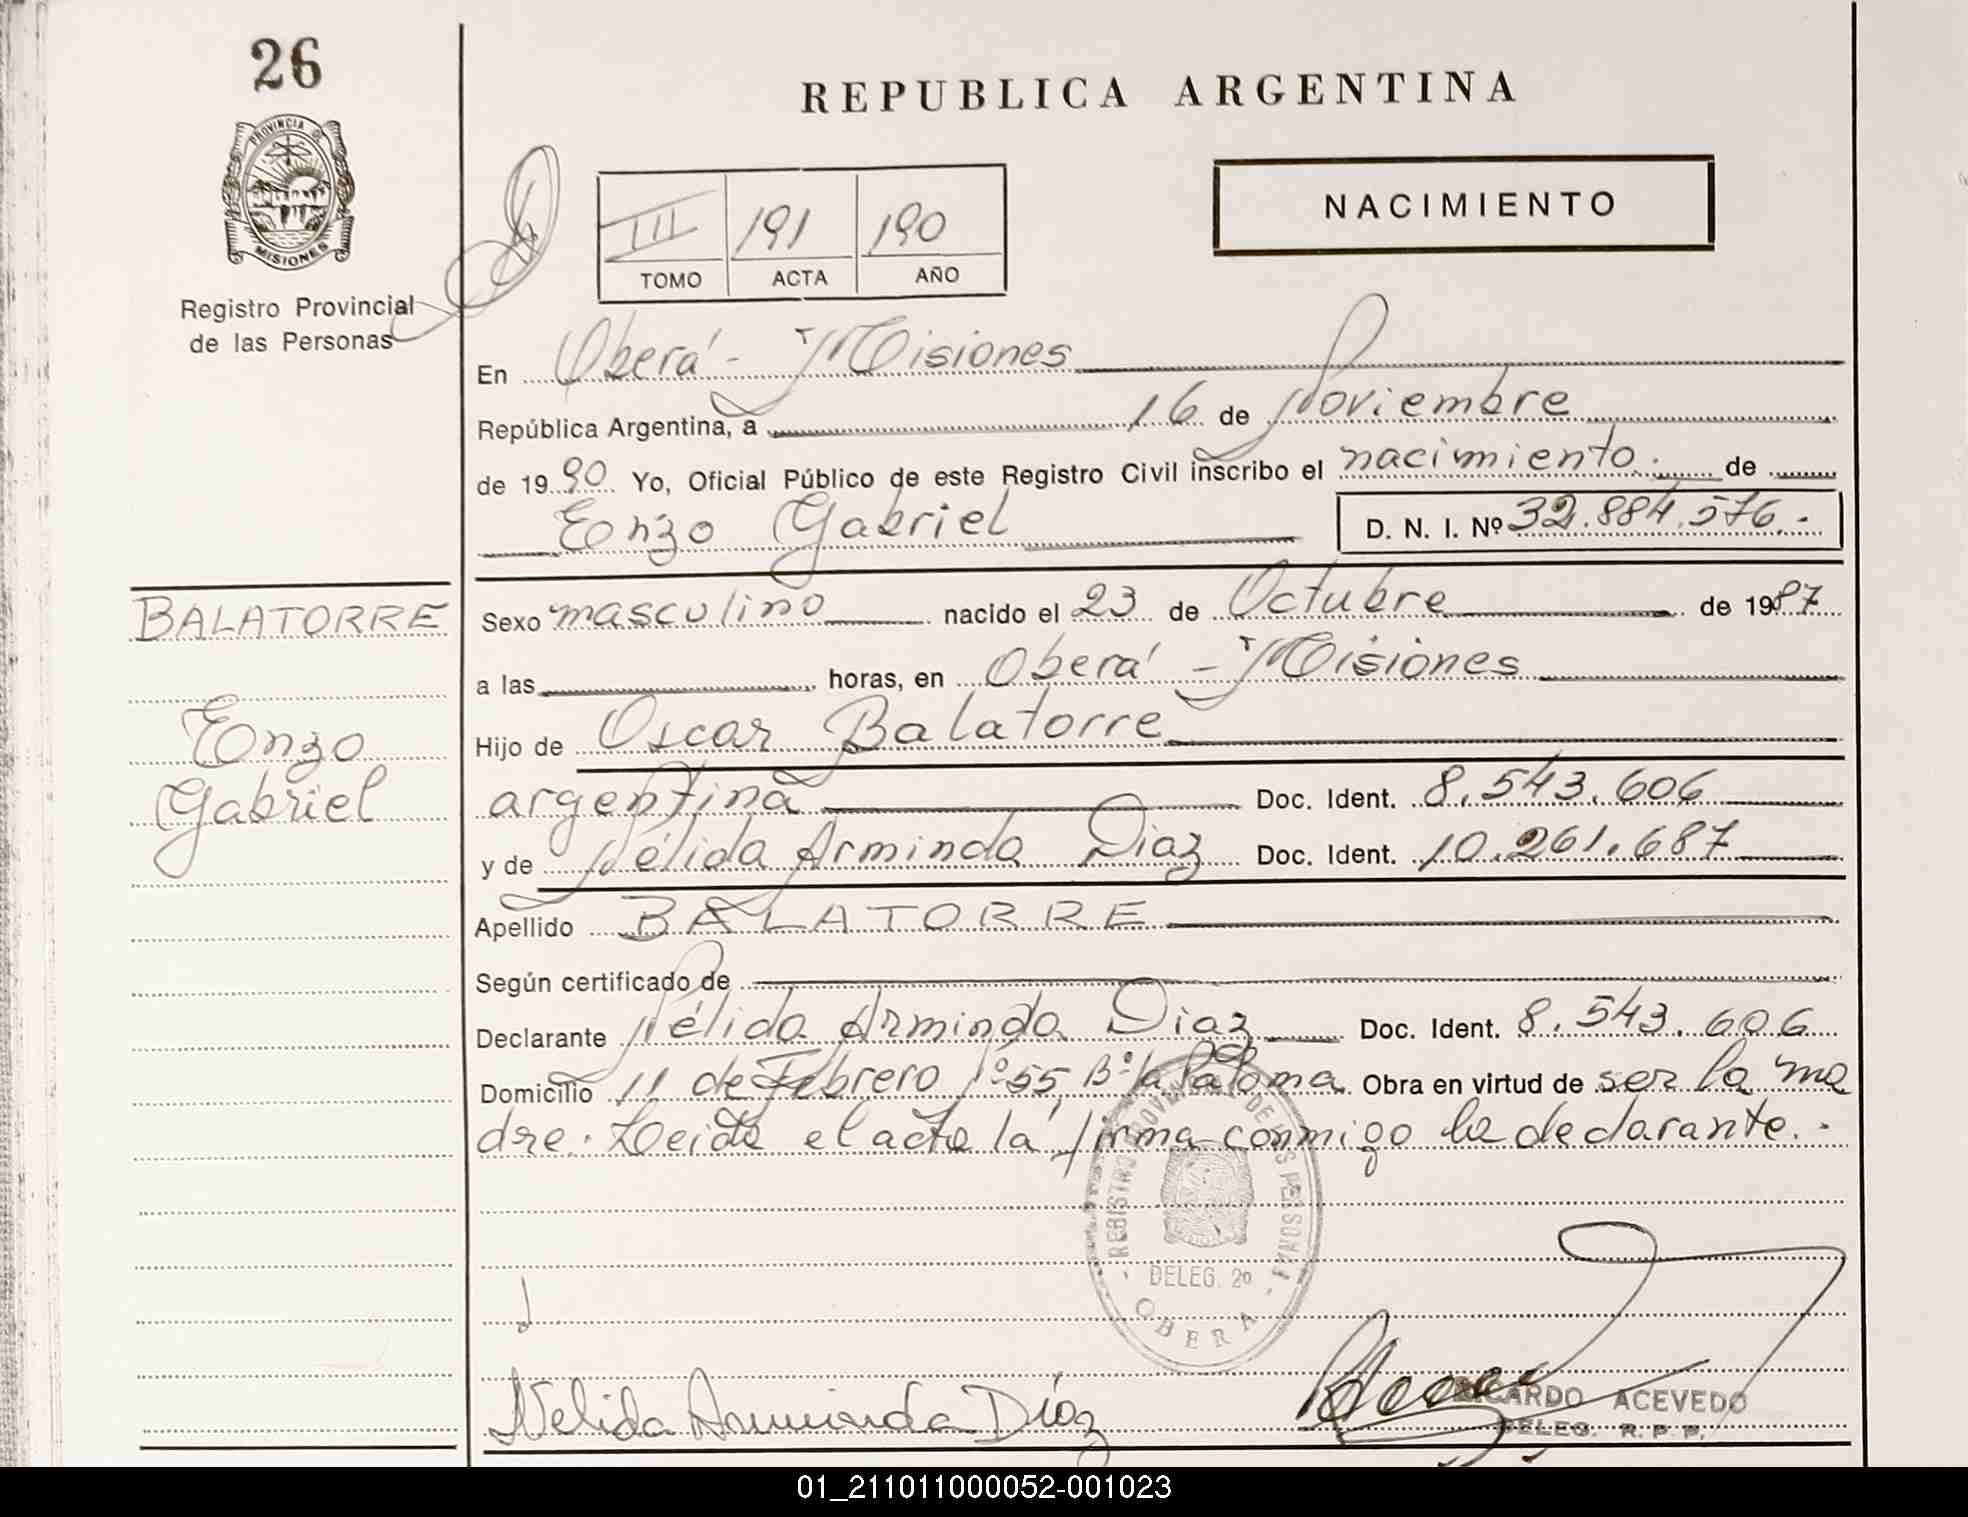 26
REPUBLICA ARGENTINA
PROVINCIA DE
MISIONES
Registro Provincial
de las Personas
III 191 190
TOMO ACTA AÑO
NACIMIENTO
En Oberá - Misiones
República Argentina, a 16 de Noviembre
de 1990 Yo, Oficial Público de este Registro Civil inscribo el nacimiento. de
Enzo Gabriel D. N. I. Nº 32.884.576.-
BALATORRE
Enzo
Gabriel
Sexo masculino nacido el 23 de Octubre de 1987
a las horas, en Oberá - Misiones
Hijo de Oscar Balatorre
argentina Doc. Ident. 8.543.606
y de Nélida Arminda Diaz Doc. Ident. 10.261.687
Apellido BALATORRE
Según certificado de
Declarante Nélida Arminda Diaz Doc. Ident. 8.543.606
Domicilio 11 de Febrero Nº 55, Bº la Paloma. Obra en virtud de ser la ma
dre. Leida el acta la firma conmigo la declarante.-
REGISTRO PROVINCIAL DE LAS PERSONAS
DELEG. 2º
OBERA
Nelida Arminda Díaz
RICARDO ACEVEDO
DELEG. R. P. P.
01_211011000052-001023